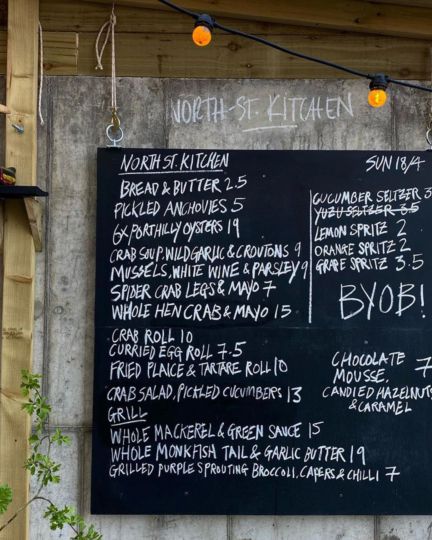 NORTH-ST. KITCHEN
NORTH ST. KITCHEN
BREAD & BUTTER 2.5
PICKLED ANCHOVIES 5
6 x PORTHILLY OYSTERS 19
CRAB SOUP, WILD GARLIC & CROUTONS 9
MUSSELS, WHITE WINE & PARSLEY 9
SPIDER CRAB LEGS & MAYO 7
WHOLE HEN CRAB & MAYO 15
CRAB ROLL 10
CURRIED EGG ROLL 7.5
FRIED PLAICE & TARTARE ROLL 10
CRAB SALAD, PICKLED CUCUMBERS 13
GRILL
WHOLE MACKEREL & GREEN SAUCE 15
WHOLE MONKFISH TAIL & GARLIC BUTTER 19
GRILLED PURPLE SPROUTING BROCCOLI, CAPERS & CHILLI 7
SUN 18/4
CUCUMBER SELTZER
YUZU SELTZER 3.5
LEMON SPRITZ 2
ORANGE SPRITZ 2
GRAPE SPRITZ 3.5
BYOB!
CHOCOLATE 7
MOUSSE,
CANDIED HAZELNUTS
& CARAMEL